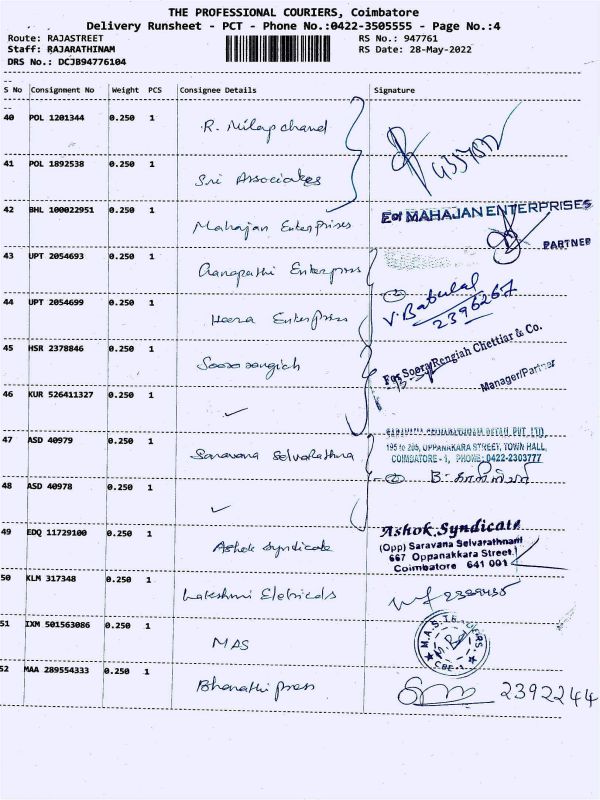 THE PROFESSIONAL COURIERS, Coimbatore
Delivery Runsheet - PCT - Phone No.:0422-3505555 - Page No.:4
Route: RAJASTREET RS No.: 947761
Staff: RAJARATHINAM RS Date: 28-May-2022
DRS No.: DCJB94776104
S No Consignment No Weight PCS Consignee Details Signature
40 POL 1201344 0.250 1 R. Milap chand
41 POL 1892538 0.250 1 Sri Associates
42 BHL 100022951 0.250 1 Mahajan Enterprises
For MAHAJAN ENTERPRISES
PARTNER
43 UPT 2054693 0.250 1 Ganapathi Enterprises
V. Babulal
2396267
44 UPT 2054699 0.250 1 Heera Enterprises
45 HSR 2378846 0.250 1 Soora rangiah
For Soora Rengiah Chettiar & Co.
Manager/Partner
46 KUR 526411327 0.250 1 ✓
47 ASD 40979 0.250 1 Saravana Selvarathna
195 to 205, OPPANAKARA STREET, TOWN HALL,
COIMBATORE - 1, PHONE: 0422-2303777
48 ASD 40978 0.250 1 ✓
49 EDQ 11729100 0.250 1 Ashok Syndicate
Ashok Syndicate
(Opp) Saravana Selvarathnam
667 Oppanakkara Street
Coimbatore 641 001
50 KLM 317348 0.250 1 Lakshmi Eletricals
51 IXM 501563086 0.250 1 MAS
52 MAA 289554333 0.250 1 Bharathi press 2392244